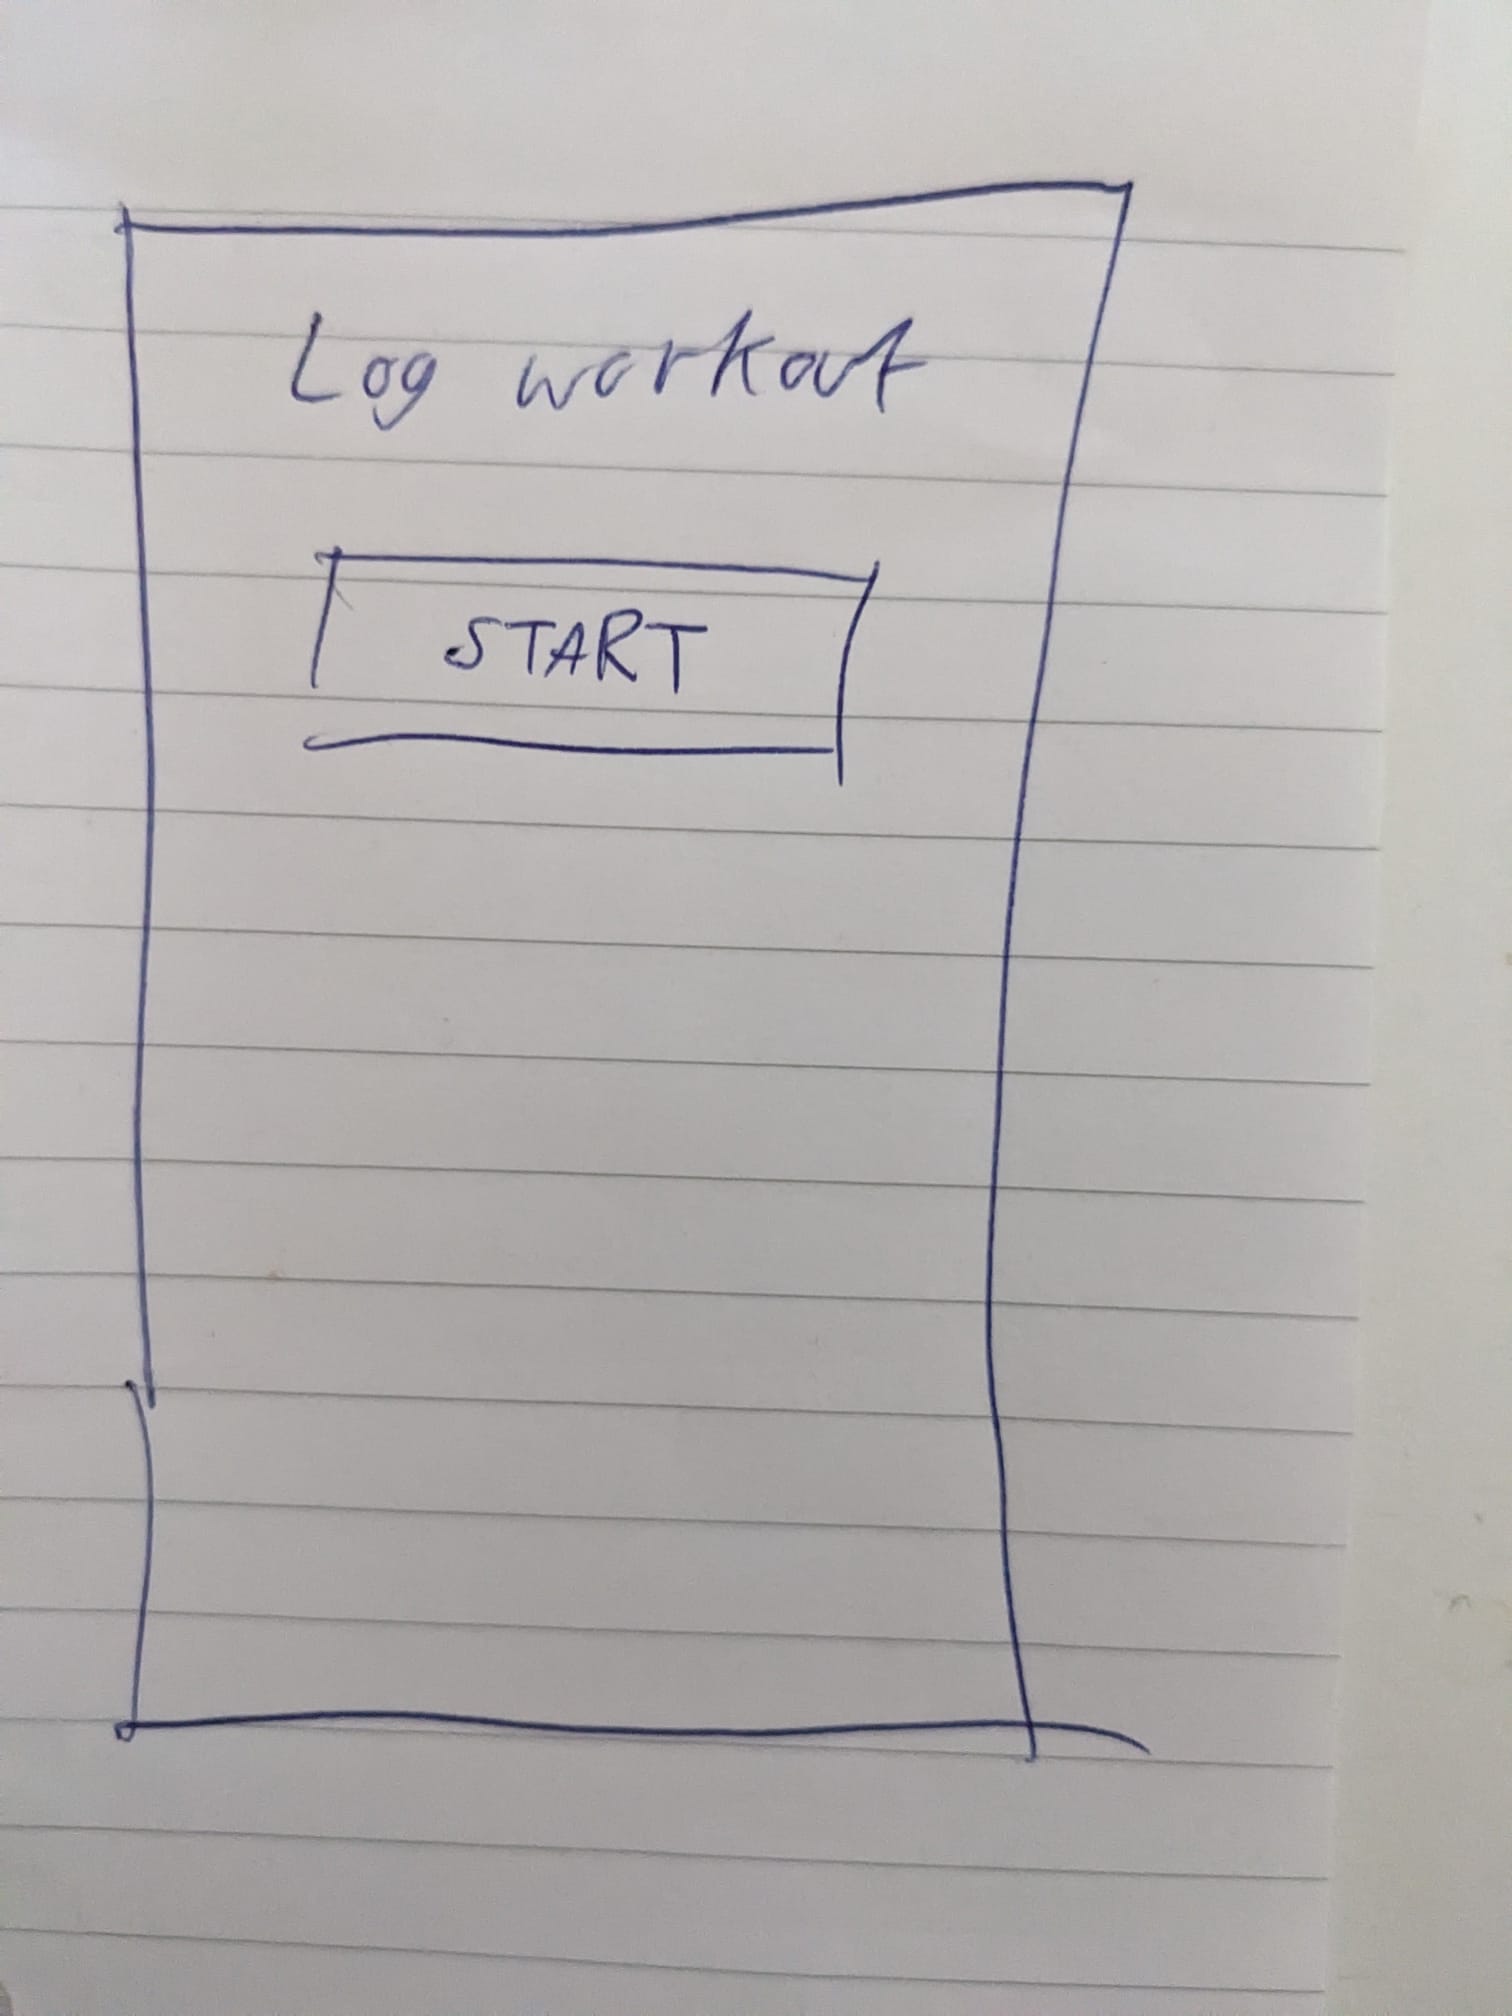 Log workout
START